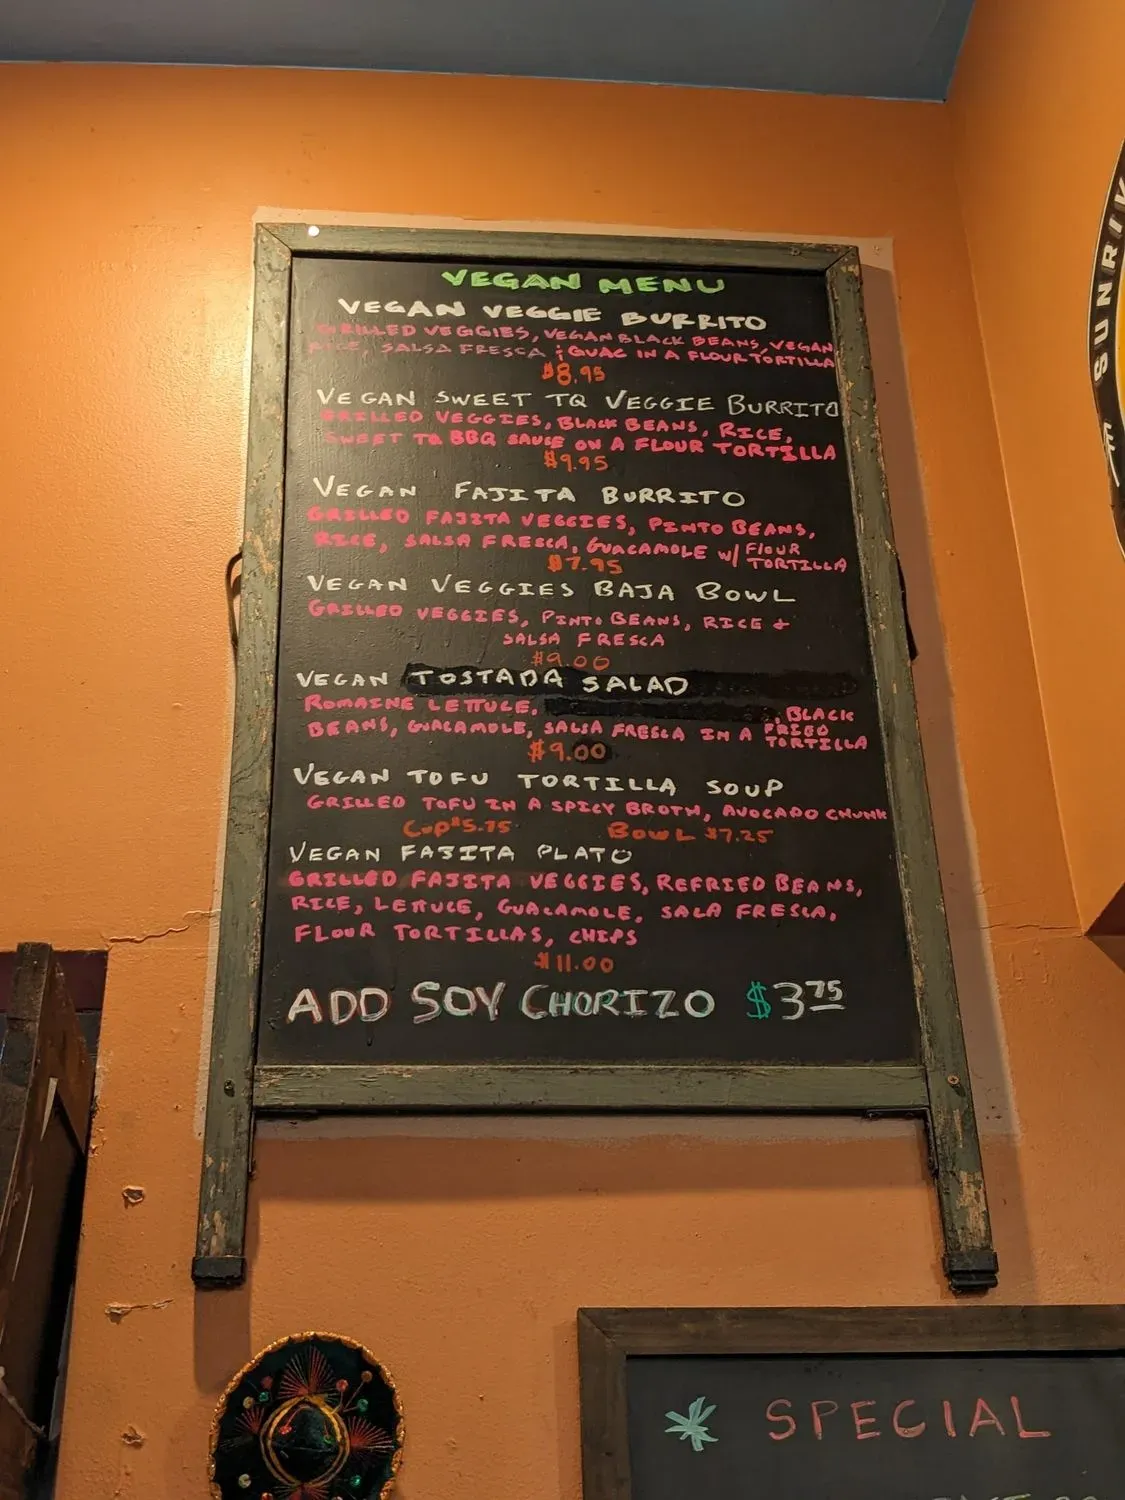 VEGAN MENU
VEGAN VEGGIE BURRITO
GRILLED VEGGIES, VEGAN BLACK BEANS, VEGAN
RICE, SALSA FRESCA & GUAC IN A FLOUR TORTILLA
$8.95
VEGAN SWEET TQ VEGGIE BURRITO
GRILLED VEGGIES, BLACK BEANS, RICE,
SWEET TQ BBQ SAUCE ON A FLOUR TORTILLA
$9.95
VEGAN FAJITA BURRITO
GRILLED FAJITA VEGGIES, PINTO BEANS,
RICE, SALSA FRESCA, GUACAMOLE W/ FLOUR
TORTILLA
$7.95
VEGAN VEGGIES BAJA BOWL
GRILLED VEGGIES, PINTO BEANS, RICE +
SALSA FRESCA
$9.00
VEGAN TOSTADA SALAD
ROMAINE LETTUCE, , BLACK
BEANS, GUACAMOLE, SALSA FRESCA IN A FRIED
TORTILLA
$9.00
VEGAN TOFU TORTILLA SOUP
GRILLED TOFU IN A SPICY BROTH, AVOCADO CHUNK
CUP $5.75 BOWL $7.25
VEGAN FAJITA PLATO
GRILLED FAJITA VEGGIES, REFRIED BEANS,
RICE, LETTUCE, GUACAMOLE, SALA FRESCA,
FLOUR TORTILLAS, CHIPS
$11.00
ADD SOY CHORIZO $3.75
SUNRIV
* SPECIAL